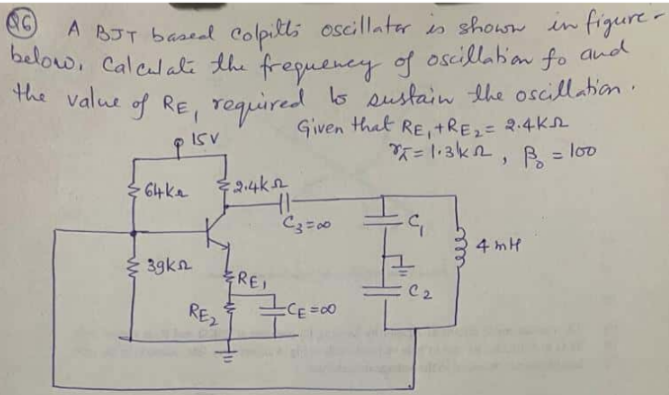 Q6 A BJT based Colpitts oscillator is shown in figure
below. Calculate the frequency of oscillation fo and
the value of RE1 required to sustain the oscillation.
Given that RE1 + RE2 = 2.4KΩ
rπ = 1.3kΩ, βo = 100
15V
64kΩ
2.4kΩ
C3=∞
C1
4 mH
39kΩ
RE1
RE2
CE=∞
C2